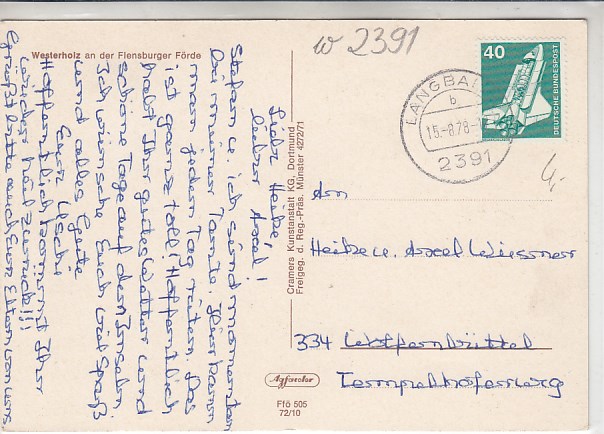 Westerholz an der Flensburger Förde
w 2391
40
DEUTSCHE BUNDESPOST
LANGBA
b
15.-8.78-1
2391
4,-
Liebe Heike,
lieber Axel!
Stefan u. ich sind momentan
bei meiner Tante. Hier kann
man jeden Tag reiten. Das
ist ganz toll! Hoffentlich
habt Ihr gutes Wetter und
schöne Tage auf den Inseln.
Ich wünsche Euch viel Spaß
und alles Gute
Eure Uschi
Hoffentlich kommt Ihr
wieder heil zurück!!!
Grüßt bitte auch Eure Eltern von uns
Cramers Kunstanstalt KG, Dortmund
Freigeg. d. Reg.-Präs. Münster 4272/71
An
Heike u. Axel Wiesner
334 Wolfenbüttel
Tempelhoferweg
Agfacolor
Ffö 505
72/10